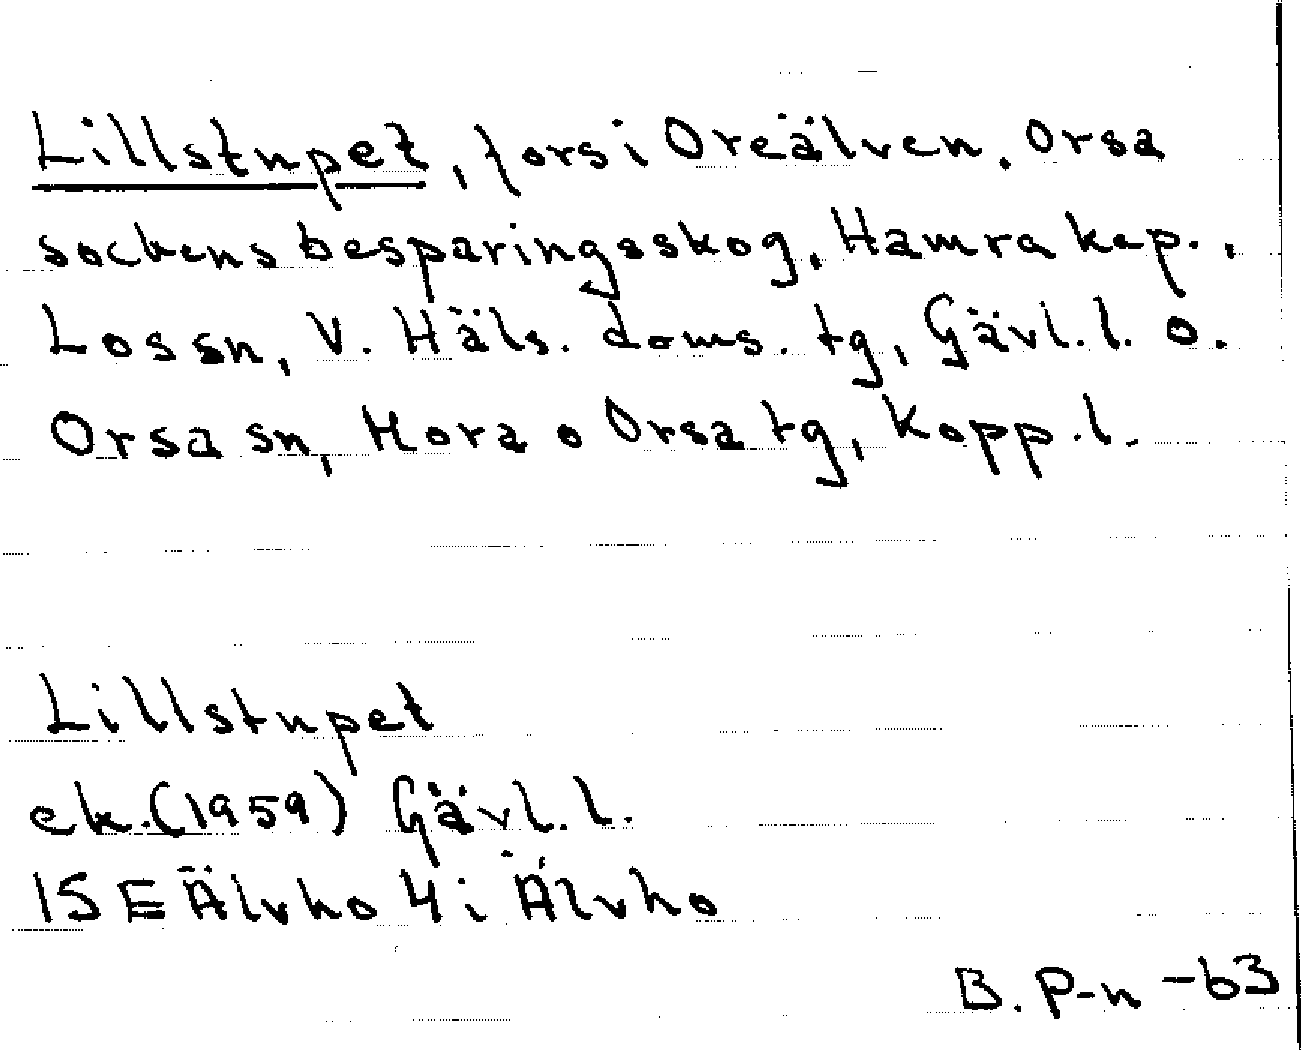 Lillstupet, fors i Oreälven. Orsa
sockens besparingsskog, Hamra kap.,
Los sn, V. Häls. doms. tg, Gävl. l. o.
Orsa sn, Mora o Orsa tg, Kopp. l.
Lillstupet
ek. (1959) Gävl. l.
15 E Älvho 4 i Älvho
B. P-n -63